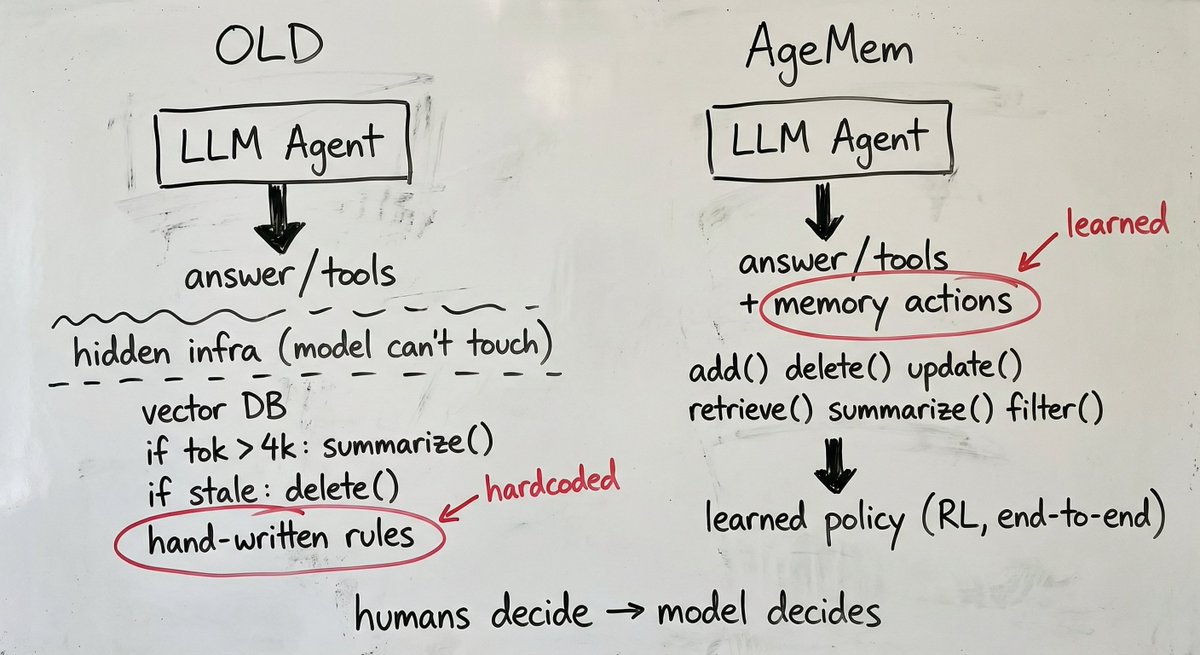 OLD
LLM Agent
answer/tools
hidden infra (model can't touch)
vector DB
if tok > 4k: summarize()
if stale: delete()
hardcoded
hand-written rules
AgeMem
LLM Agent
learned
answer/tools
+ memory actions
add() delete() update()
retrieve() summarize() filter()
learned policy (RL, end-to-end)
humans decide → model decides